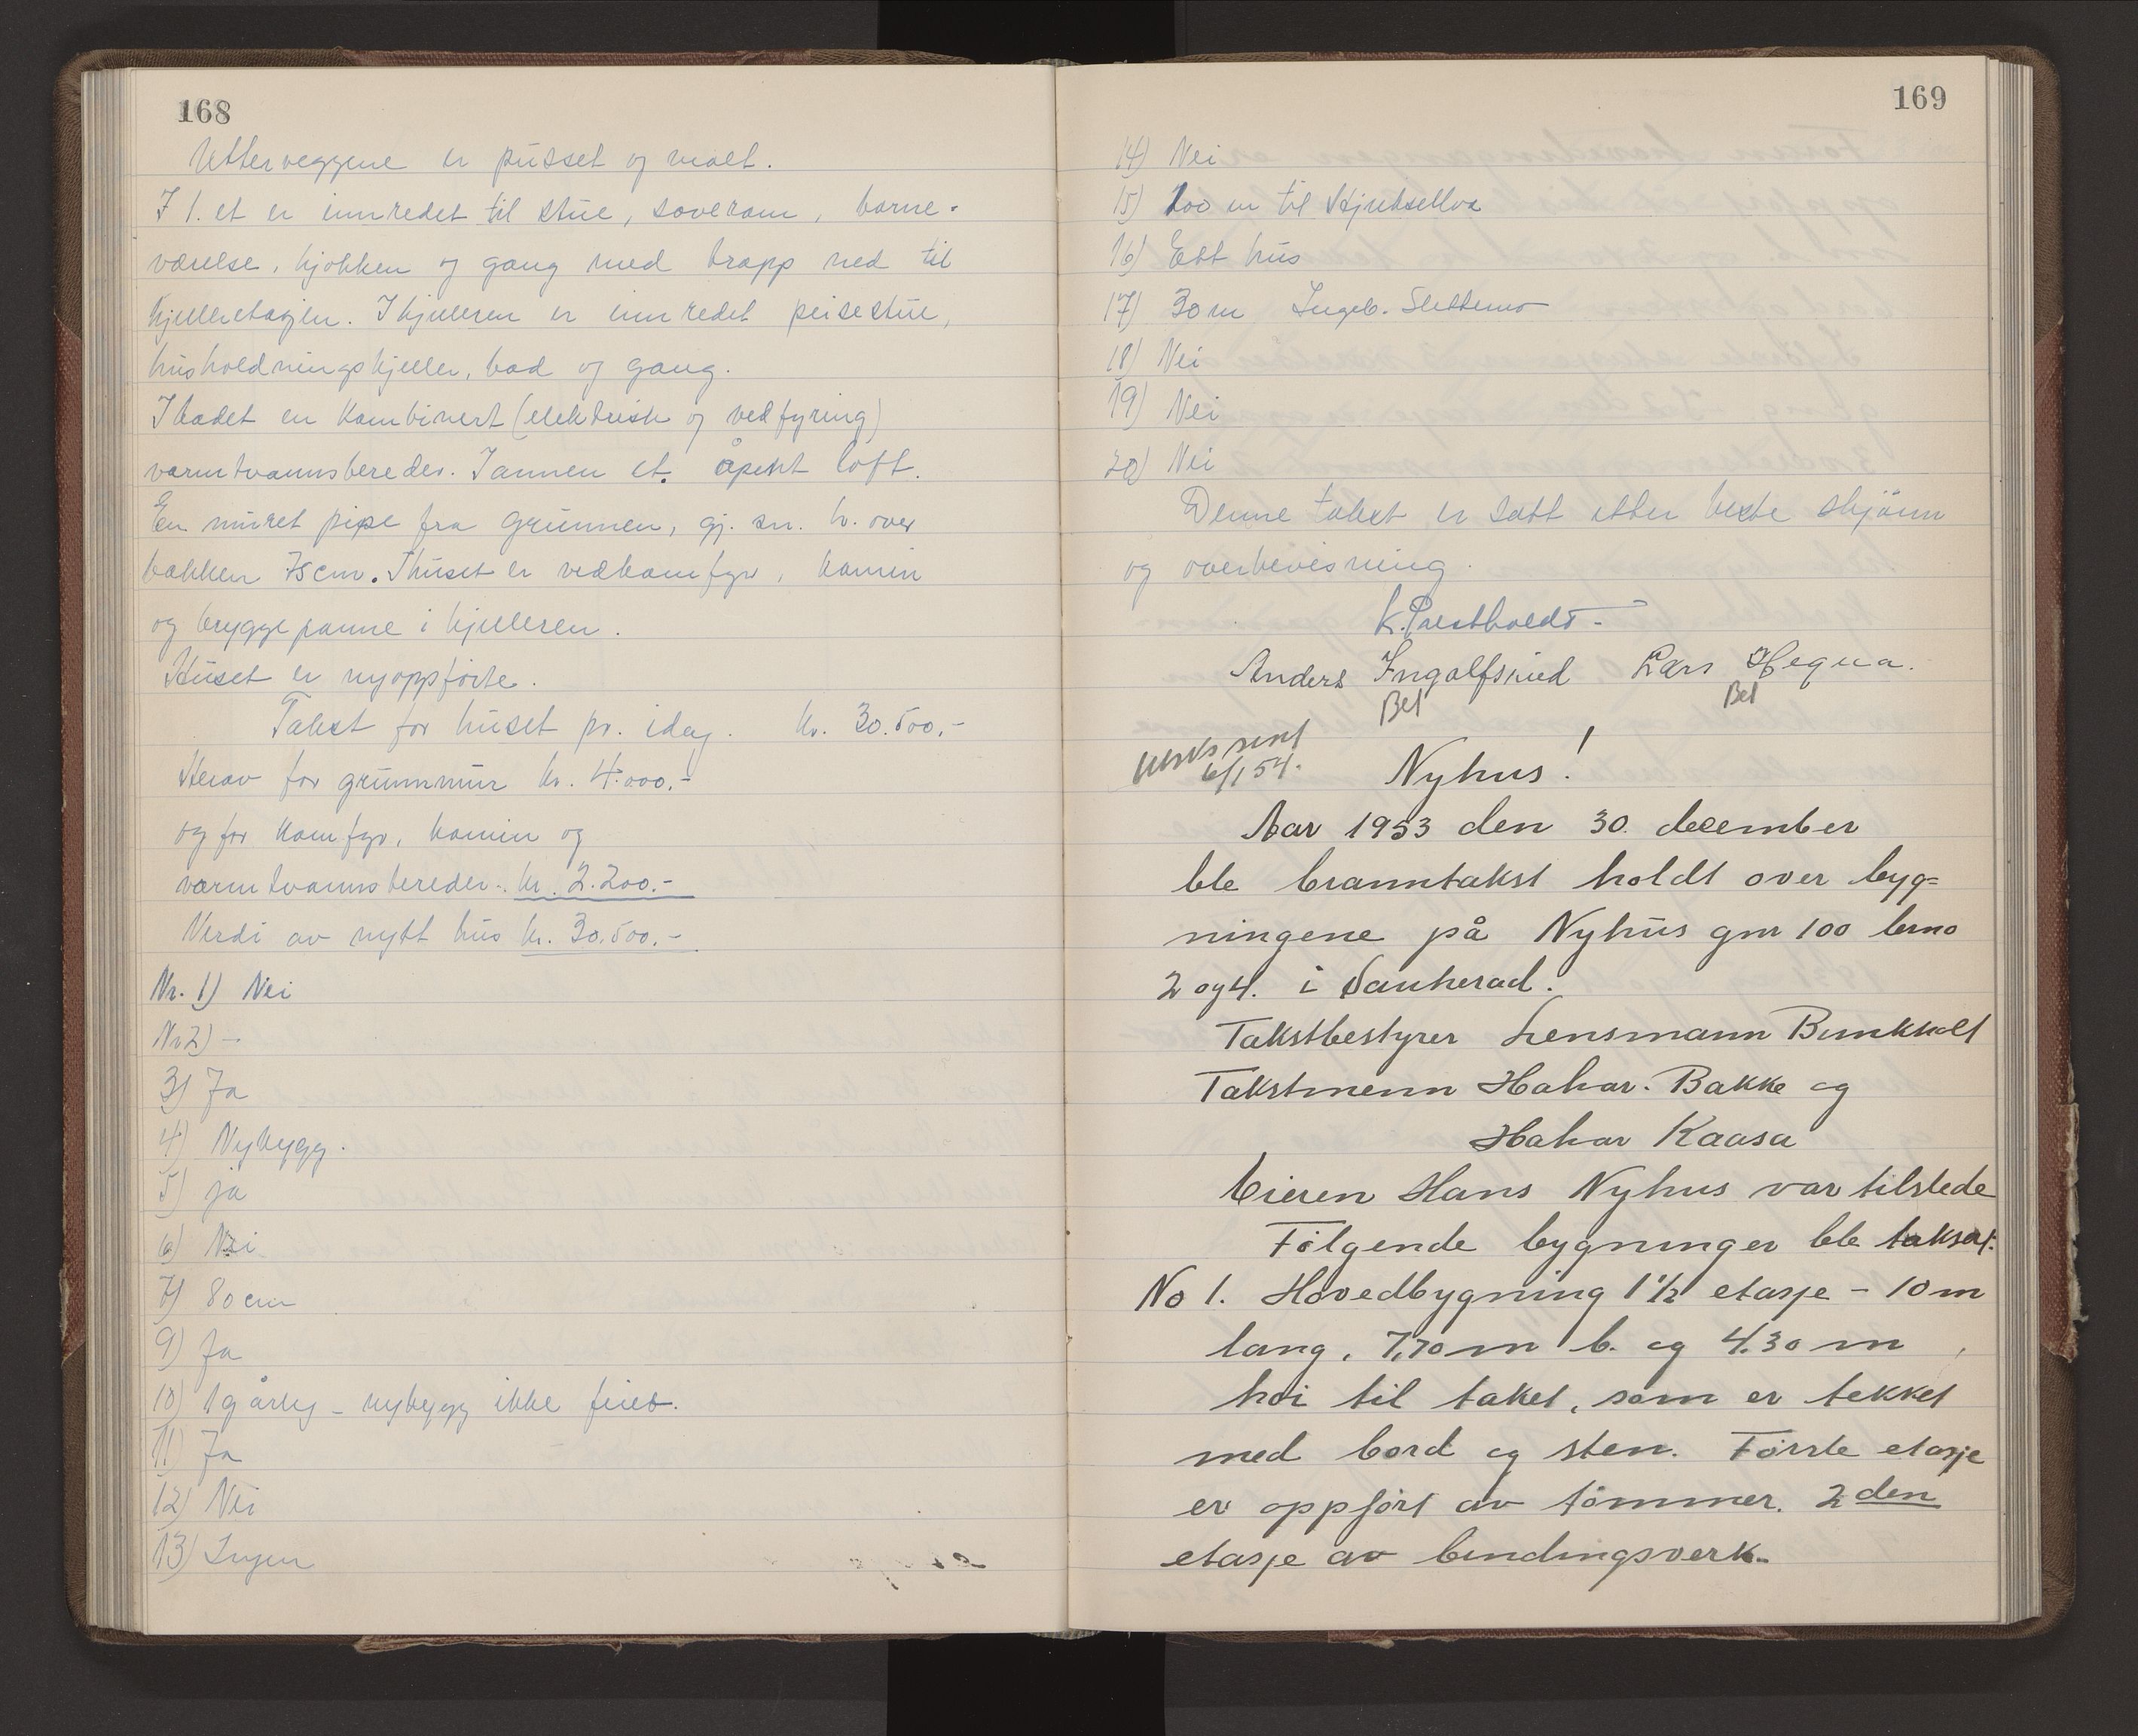 168
Utterveggene er pusset og malt.
I 1. et er innredet til stue, soverom, barne-
værelse, kjøkken og gang med trapp ned til
kjelleretasjen. I kjelleren er innredet peisestue,
husholdningskjeller, bad og gang.
I badet en kombinert (elektrisk og vedfyring)
varmtvannsbereder. I annen et. åpent loft.
En muret pipe fra grunnen, gj. sn. h. over
bakken 75 cm. I huset er vedkomfyr, kamin
og bryggepanne i kjelleren.
Huset er nyoppførte.
Takst for huset pr. idag. kr. 30.500.-
Herav for grunnmur kr. 4.000.-
og for komfyr, kamin og
varmtvannsbereder. kr. 2.200.-
Verdi av nytt hus kr. 30.500.-
Nr. 1) Nei
Nr 2) -
3) Ja
4) Nybygg.
5) ja
6) Nei
7) 80 cm
9) Ja
10) 1 g årlig - nybygg ikke feiet.
11) Ja
12) Nei
13) Ingen
169
14) Nei
15) 200 m til Hjukselva
16) Ett hus
17) 30 m Ingeb. Slettemo
18) Nei
19) Nei
20) Nei
Denne takst er satt etter beste skjönn
og overbevisning.
K. Prestholdt.
Anders Ingolfsrud Lars Hegna.
Bet Bet
sent
6/1 54.
Nyhus!
Aar 1953 den 30. december
ble branntakst holdt over byg=
ningene på Nyhus gnr 100 brno
2 og 4. i Sauherad.
Takstbestyrer Lensmann Bunkholt
Takstmenn Hakar. Bakke og
Hakar Kaasa
Eieren Hans Nyhus var tilstede
Følgende bygninger ble taksert.
No 1. Hovedbygning 1 1/2 etasje - 10 m
lang, 7,70 m b. og 4.30 m
höi til taket, som er tekket
med bord og sten. Förste etasje
er oppfört av tömmer. 2 den
etasje av bindingsverk.